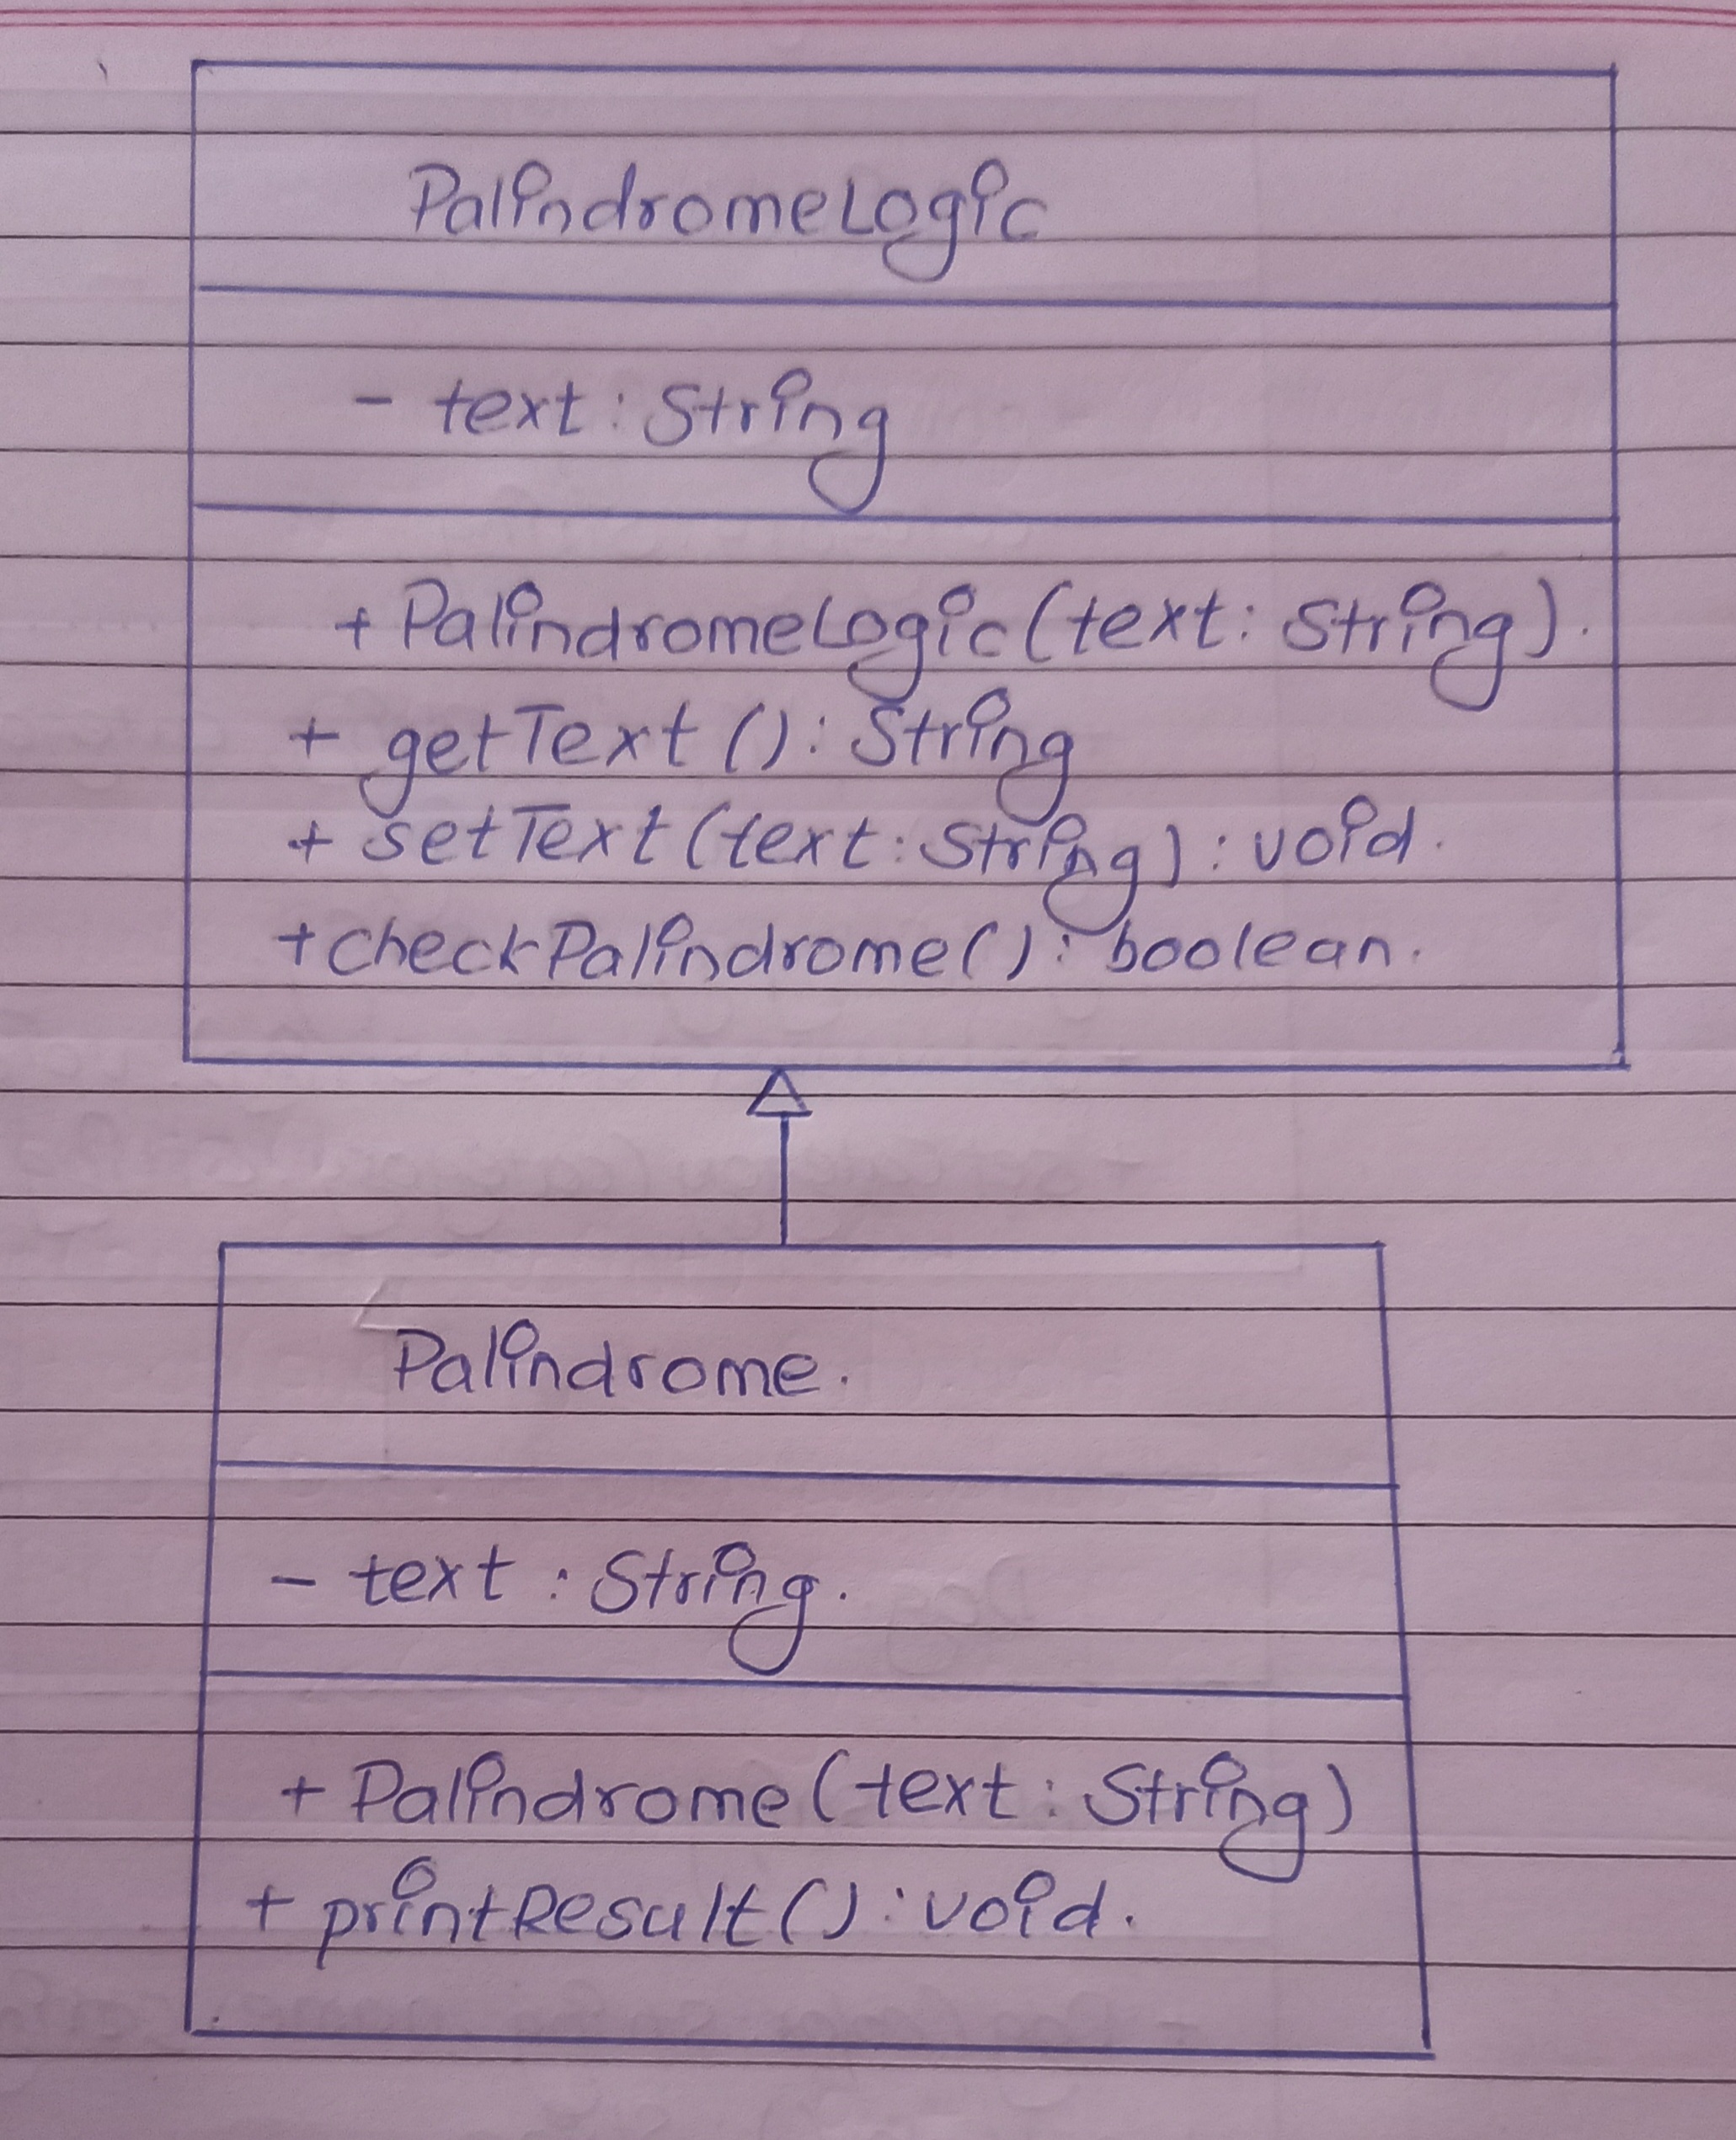 PalindromeLogic
- text : String
+ PalindromeLogic(text: String).
+ getText () : String
+ setText (text : String) : void.
+ checkPalindrome() : boolean.
Palindrome.
- text : String.
+ Palindrome (text : String)
+ printResult() : void.